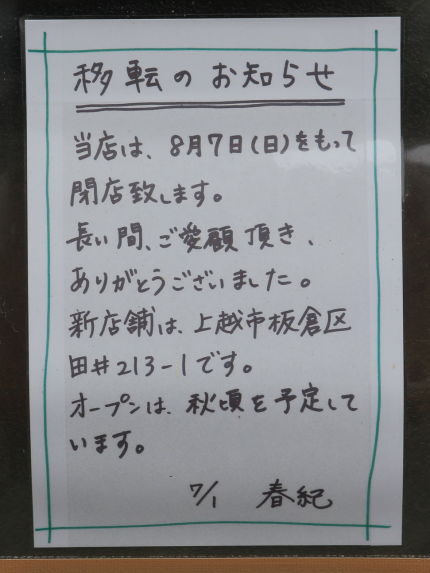 移転のお知らせ
当店は、8月7日(日)をもって
閉店致します。
長い間、ご愛顧頂き、
ありがとうございました。
新店舗は、上越市板倉区
田井213-1です。
オープンは、秋頃を予定して
います。
7/1 春紀